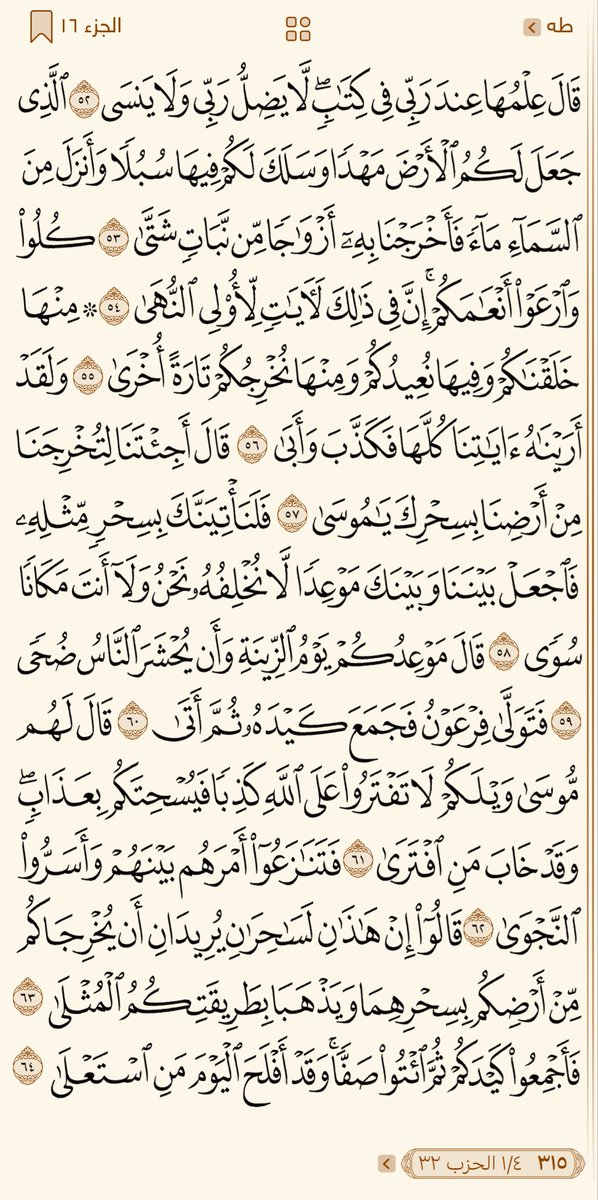 طه
الجزء ١٦
قَالَ عِلۡمُهَا عِندَ رَبِّي فِي كِتَٰبٖۖ لَّا يَضِلُّ رَبِّي وَلَا يَنسَى ٥٢ ٱلَّذِي
جَعَلَ لَكُمُ ٱلۡأَرۡضَ مَهۡدٗا وَسَلَكَ لَكُمۡ فِيهَا سُبُلٗا وَأَنزَلَ مِنَ
ٱلسَّمَآءِ مَآءٗ فَأَخۡرَجۡنَا بِهِۦٓ أَزۡوَٰجٗا مِّن نَّبَاتٖ شَتَّىٰ ٥٣ كُلُواْ
وَٱرۡعَوۡاْ أَنۡعَٰمَكُمۡۚ إِنَّ فِي ذَٰلِكَ لَأٓيَٰتٖ لِّأُوْلِي ٱلنُّهَىٰ ٥٤ ۞ مِنۡهَا
خَلَقۡنَٰكُمۡ وَفِيهَا نُعِيدُكُمۡ وَمِنۡهَا نُخۡرِجُكُمۡ تَارَةً أُخۡرَىٰ ٥٥ وَلَقَدۡ
أَرَيۡنَٰهُ ءَايَٰتِنَا كُلَّهَا فَكَذَّبَ وَأَبَىٰ ٥٦ قَالَ أَجِئۡتَنَا لِتُخۡرِجَنَا
مِنۡ أَرۡضِنَا بِسِحۡرِكَ يَٰمُوسَىٰ ٥٧ فَلَنَأۡتِيَنَّكَ بِسِحۡرٖ مِّثۡلِهِۦ
فَٱجۡعَلۡ بَيۡنَنَا وَبَيۡنَكَ مَوۡعِدٗا لَّا نُخۡلِفُهُۥ نَحۡنُ وَلَآ أَنتَ مَكَانٗا
سُوٗى ٥٨ قَالَ مَوۡعِدُكُمۡ يَوۡمُ ٱلزِّينَةِ وَأَن يُحۡشَرَ ٱلنَّاسُ ضُحٗى
٥٩ فَتَوَلَّىٰ فِرۡعَوۡنُ فَجَمَعَ كَيۡدَهُۥ ثُمَّ أَتَىٰ ٦٠ قَالَ لَهُم
مُّوسَىٰ وَيۡلَكُمۡ لَا تَفۡتَرُواْ عَلَى ٱللَّهِ كَذِبٗا فَيُسۡحِتَكُم بِعَذَابٖۖ
وَقَدۡ خَابَ مَنِ ٱفۡتَرَىٰ ٦١ فَتَنَٰزَعُوٓاْ أَمۡرَهُم بَيۡنَهُمۡ وَأَسَرُّواْ
ٱلنَّجۡوَىٰ ٦٢ قَالُوٓاْ إِنۡ هَٰذَٰنِ لَسَٰحِرَٰنِ يُرِيدَانِ أَن يُخۡرِجَاكُم
مِّنۡ أَرۡضِكُم بِسِحۡرِهِمَا وَيَذۡهَبَا بِطَرِيقَتِكُمُ ٱلۡمُثۡلَىٰ ٦٣
فَأَجۡمِعُواْ كَيۡدَكُمۡ ثُمَّ ٱئۡتُواْ صَفّٗاۚ وَقَدۡ أَفۡلَحَ ٱلۡيَوۡمَ مَنِ ٱسۡتَعۡلَىٰ ٦٤
٣١٥ ١/٤ الحزب ٣٢